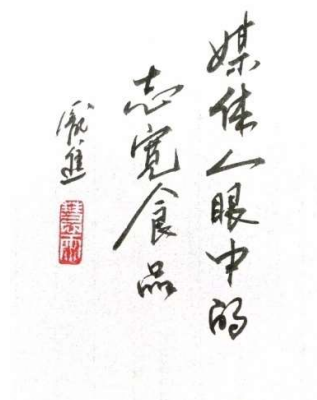 媒体人眼中的
志寬食品